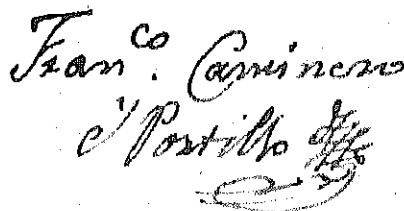 Fran.co Caminero
y Portillo